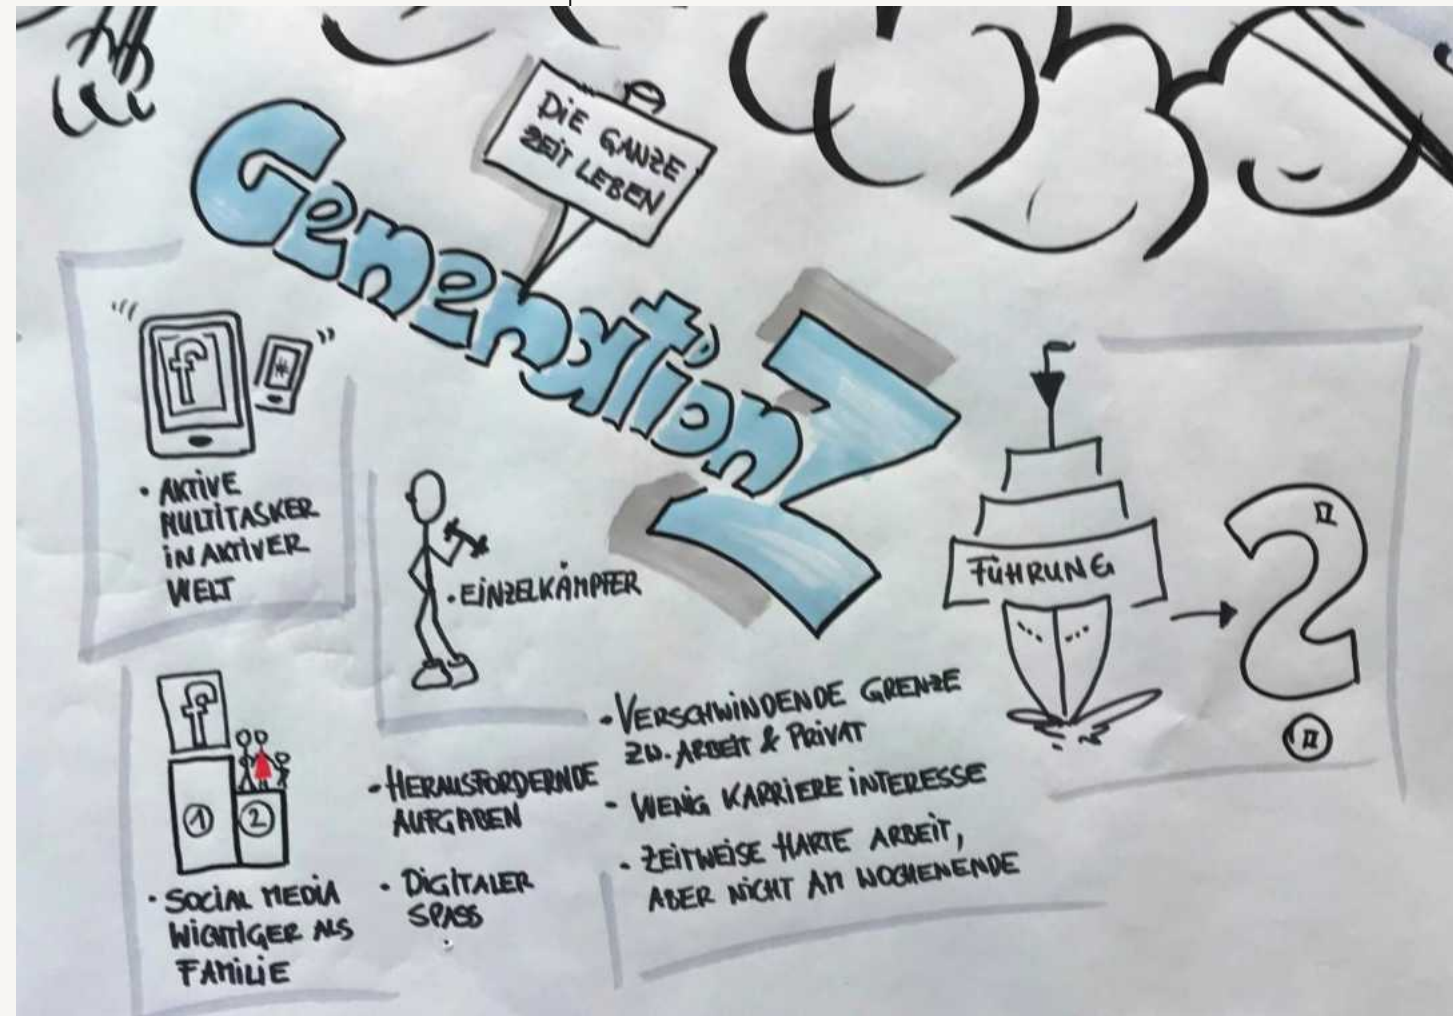 DIE GANZE
ZEIT LEBEN
Generation Z
f
*
• AKTIVE
MULTITASKER
IN AKTIVER
WELT
• EINZELKÄMPFER
FÜHRUNG
f
1 2
• SOCIAL MEDIA
WICHTIGER ALS
FAMILIE
• HERAUSFORDERNDE
AUFGABEN
• DIGITALER
SPASS
• VERSCHWINDENDE GRENZE
ZW. ARBEIT & PRIVAT
• WENIG KARRIERE INTERESSE
• ZEITWEISE HARTE ARBEIT,
ABER NICHT AM WOCHENENDE